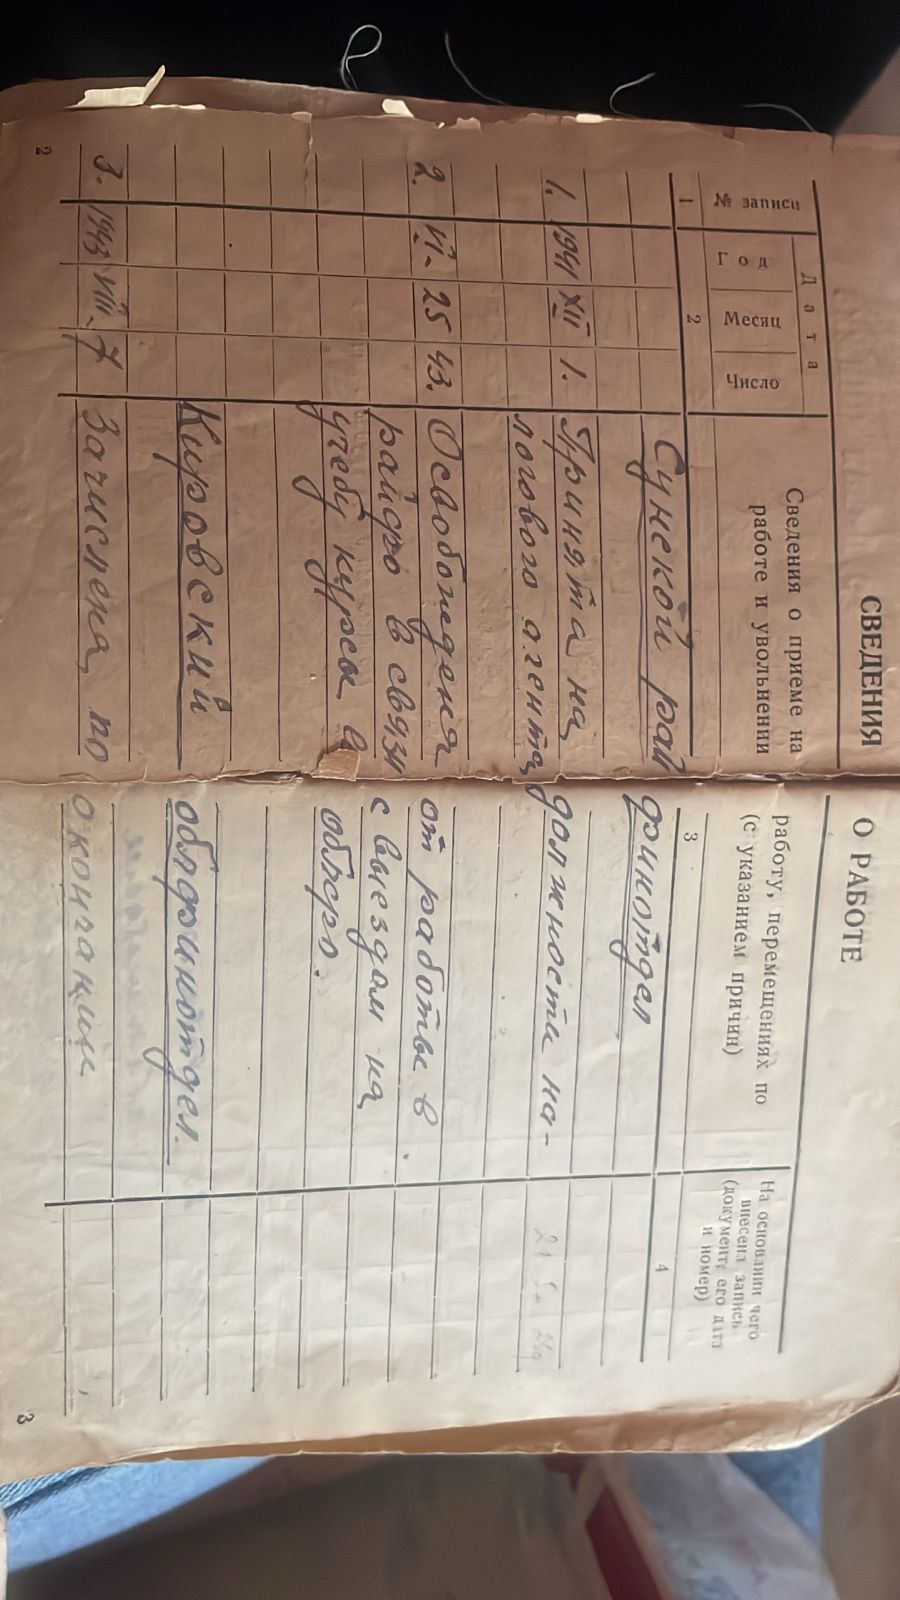 СВЕДЕНИЯ О РАБОТЕ
№ записи
Дата
Год
Месяц
Число
Сведения о приеме на работу, перемещениях по
работе и увольнении (с указанием причин)
На основании чего
внесена запись
(документ, его дата
и номер)
1 2 3 4
Сунской рай финотдел
1. 1941 XII 1. Принята на должность на-
логового агента
2. VI- 25 43. Освобождена от работы в
райфо в связи с выездом на
учебу курсы в облфо.
Кировский облфинотдел
3. 1943 VIII- 7 Зачислена по окончании
2
3